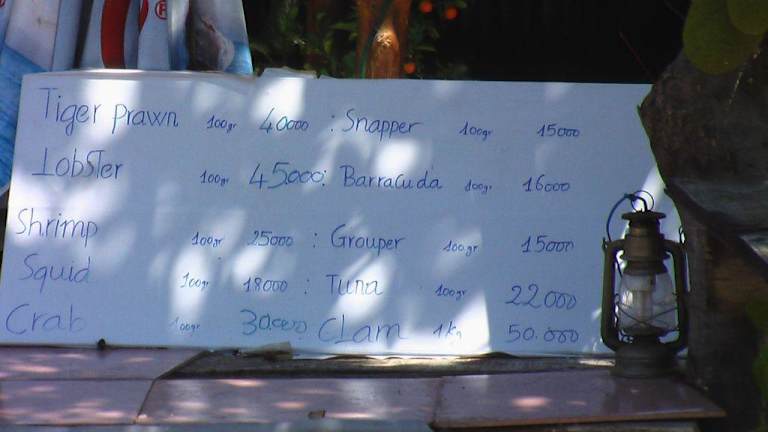 Tiger prawn 100gr 40000 : Snapper 100gr 15000
Lobster 100gr 45.000: Barracuda 100gr 16000
Shrimp 100gr 25000 : Grouper 100gr 15000
Squid 100gr 18000 : Tuna 100gr 22000
Crab 100gr 30.000 CLam 1kg 50.000